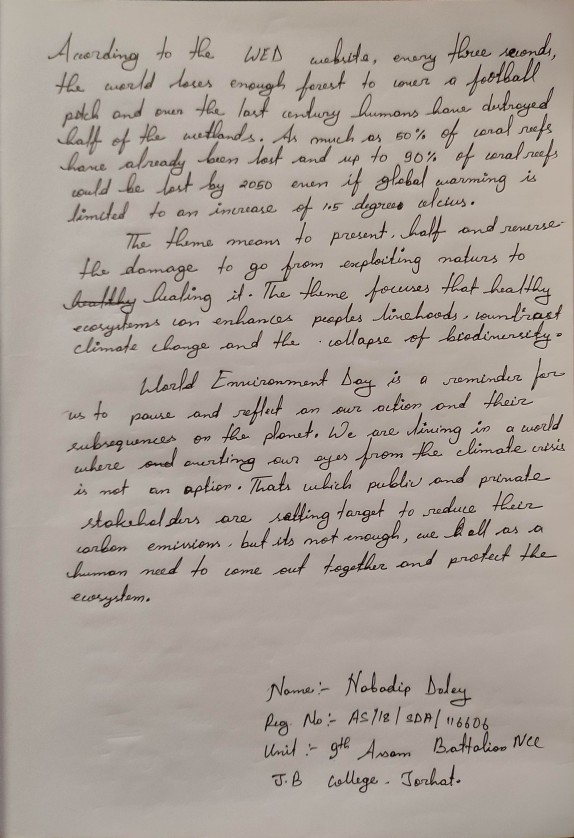 According to the WED website, every three seconds,
the world loses enough forest to cover a football
pitch and over the last century humans have destroyed
half of the wetlands. As much as 50% of coral reefs
have already been lost and up to 90% of coral reefs
could be lost by 2050 even if global warming is
limited to an increase of 1.5 degrees celcius.
The theme means to present, half and reverse
the damage to go from exploiting naturs to
healthy healing it. The theme focuses that healthy
ecosystems can enhances peoples livehoods, countract
climate change and the collapse of biodiversity.
World Environment Day is a reminder for
us to pause and reflect on our action and their
subsequences on the planet. We are living in a world
where and averting our eyes from the climate crisis
is not an option. Thats which public and private
stakeholders are setting target to reduce their
carbon emissions, but its not enough, we all as a
human need to come out together and protect the
ecosystem.
Name:- Nabadip Doley
Reg No:- AS/18/SDA/116606
Unit:- 9th Assam Battalion NCC
J.B College. Jorhat.